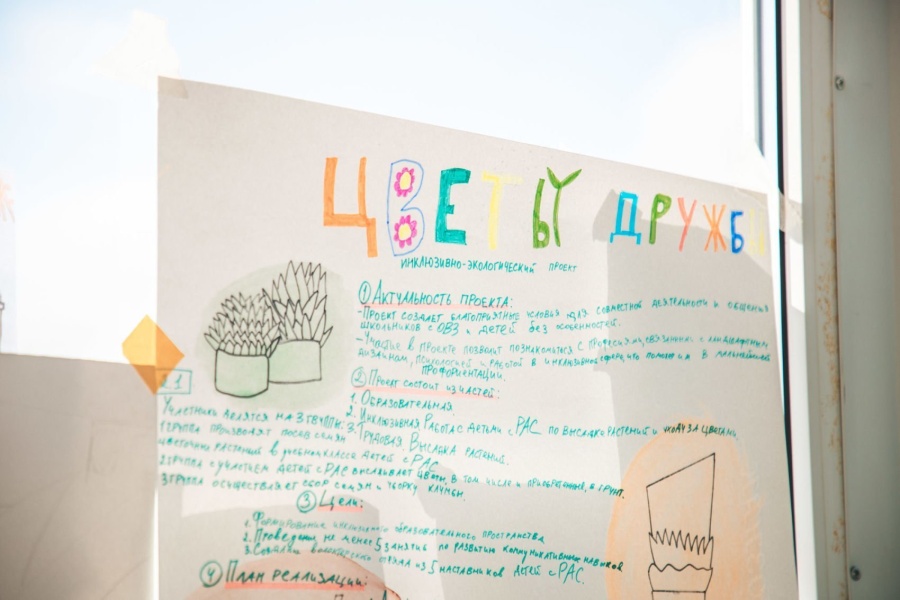 ЦВЕТЫ ДРУЖБЫ
ИНКЛЮЗИВНО-ЭКОЛОГИЧЕСКИЙ ПРОЕКТ
① АКТУАЛЬНОСТЬ ПРОЕКТА:
- ПРОЕКТ СОЗДАЕТ БЛАГОПРИЯТНЫЕ УСЛОВИЯ ДЛЯ СОВМЕСТНОЙ ДЕЯТЕЛЬНОСТИ И ОБЩЕНИЯ
ШКОЛЬНИКОВ С ОВЗ И ДЕТЕЙ БЕЗ ОСОБЕННОСТЕЙ.
- УЧАСТИЕ В ПРОЕКТЕ ПОЗВОЛИТ ПОЗНАКОМИТЬСЯ С ПРОФЕСИЯМИ, СВЯЗАННЫМИ С ЛАНДШАФТНЫМ
ДИЗАЙНОМ, ПСИХОЛОГИЕЙ И РАБОТОЙ В ИНКЛЮЗИВНОЙ СФЕРЕ, ЧТО В ДАЛЬНЕЙШЕЙ
ПРОФОРИЕНТАЦИИ.
② ПРОЕКТ СОСТОИТ ИЗ ЧАСТЕЙ:
1. ОБРАЗОВАТЕЛЬНАЯ
2. ИНКЛЮЗИВНАЯ РАБОТА С ДЕТЬМИ С РАС ПО ВЫСАДКЕ РАСТЕНИЙ И УХОДУ ЗА ЦВЕТАМИ.
3. ТРУДОВАЯ. ВЫСАДКА РАСТЕНИЙ.
2.1
УЧАСТНИКИ ДЕЛЯТСЯ НА 3 ГРУППЫ:
1 ГРУППА ПРОИЗВОДЯТ ПОСЕВ СЕМЯН
ЦВЕТОЧНЫХ РАСТЕНИЙ В ДЕТЕЙ С РАС.
2 ГРУППА С УЧАСТИЕМ ДЕТЕЙ С РАС ВЫСАЖИВАЕТ ЦВЕТЫ, В ТОМ ЧИСЛЕ И ПРИОБРЕТЕННЫЕ, В ГРУНТ.
3 ГРУППА ОСУЩЕСТВЛЯЕТ СБОР СЕМЯН И УБОРКУ КЛУМБЫ.
③ ЦЕЛИ:
1. ФОРМИРОВАНИЕ ОБРАЗОВАТЕЛЬНОГО ПРОСТРАНСТВА
2. ПРОВЕДЕНИЕ НЕ МЕНЕЕ 5 ЗАНЯТИЙ ПО РАЗВИТИЮ КОММУНИКАТИВНЫХ НАВЫКОВ
3. ИЗ 5 НАСТАВНИКОВ ДЕТЕЙ С РАС.
④ ПЛАН РЕАЛИЗАЦИИ: